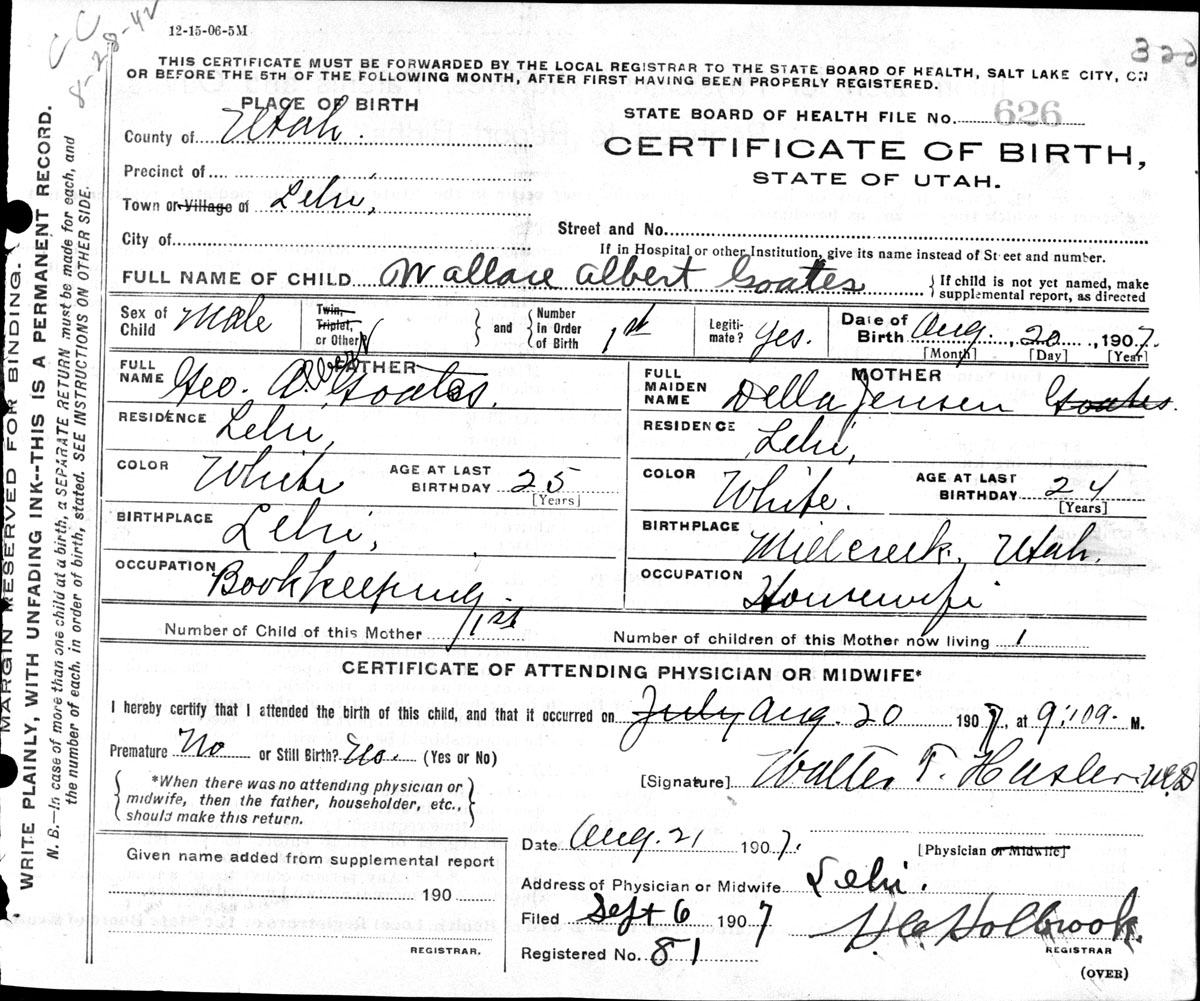 CC
8-28-42
12-15-06-5M
322
THIS CERTIFICATE MUST BE FORWARDED BY THE LOCAL REGISTRAR TO THE STATE BOARD OF HEALTH, SALT LAKE CITY, ON
OR BEFORE THE 5TH OF THE FOLLOWING MONTH, AFTER FIRST HAVING BEEN PROPERLY REGISTERED.
MARGIN RESERVED FOR BINDING.
WRITE PLAINLY, WITH UNFADING INK--THIS IS A PERMANENT RECORD.
N. B.—In case of more than one child at a birth, a SEPARATE RETURN must be made for each, and
the number of each, in order of birth, stated. SEE INSTRUCTIONS ON OTHER SIDE.
PLACE OF BIRTH
County of Utah.
Precinct of
Town or Village of Lehi,
City of
STATE BOARD OF HEALTH FILE No. 626
CERTIFICATE OF BIRTH,
STATE OF UTAH.
Street and No.
If in Hospital or other Institution, give its name instead of Street and number.
FULL NAME OF CHILD Wallace Albert Goates { If child is not yet named, make
supplemental report, as directed
Sex of Child Male
Twin, Triplet, or Other } and { Number in Order of Birth 1st
Legitimate? Yes.
Date of Birth Aug. 20, 1907.
[Month] [Day] [Year]
FATHER
FULL NAME Geo. Albert Goates.
RESIDENCE Lehi,
COLOR White AGE AT LAST BIRTHDAY 25
[Years]
BIRTHPLACE Lehi,
OCCUPATION Bookkeeping
MOTHER
FULL MAIDEN NAME Della Jensen Goates.
RESIDENCE Lehi,
COLOR White. AGE AT LAST BIRTHDAY 24
[Years]
BIRTHPLACE Millcreek, Utah.
OCCUPATION Housewife
Number of Child of this Mother 1st
Number of children of this Mother now living 1
CERTIFICATE OF ATTENDING PHYSICIAN OR MIDWIFE*
I hereby certify that I attended the birth of this child, and that it occurred on July Aug. 20 1907, at 9:10 a. M.
Premature No or Still Birth? No. (Yes or No)
*When there was no attending physician or
midwife, then the father, householder, etc.,
should make this return.
[Signature] Walter T. Hasler M.D
Date Aug. 21 1907.
[Physician or Midwife]
Given name added from supplemental report
190
REGISTRAR.
Address of Physician or Midwife Lehi.
Filed Sept 6 1907
Registered No. 81
Holbrook.
REGISTRAR
(OVER)